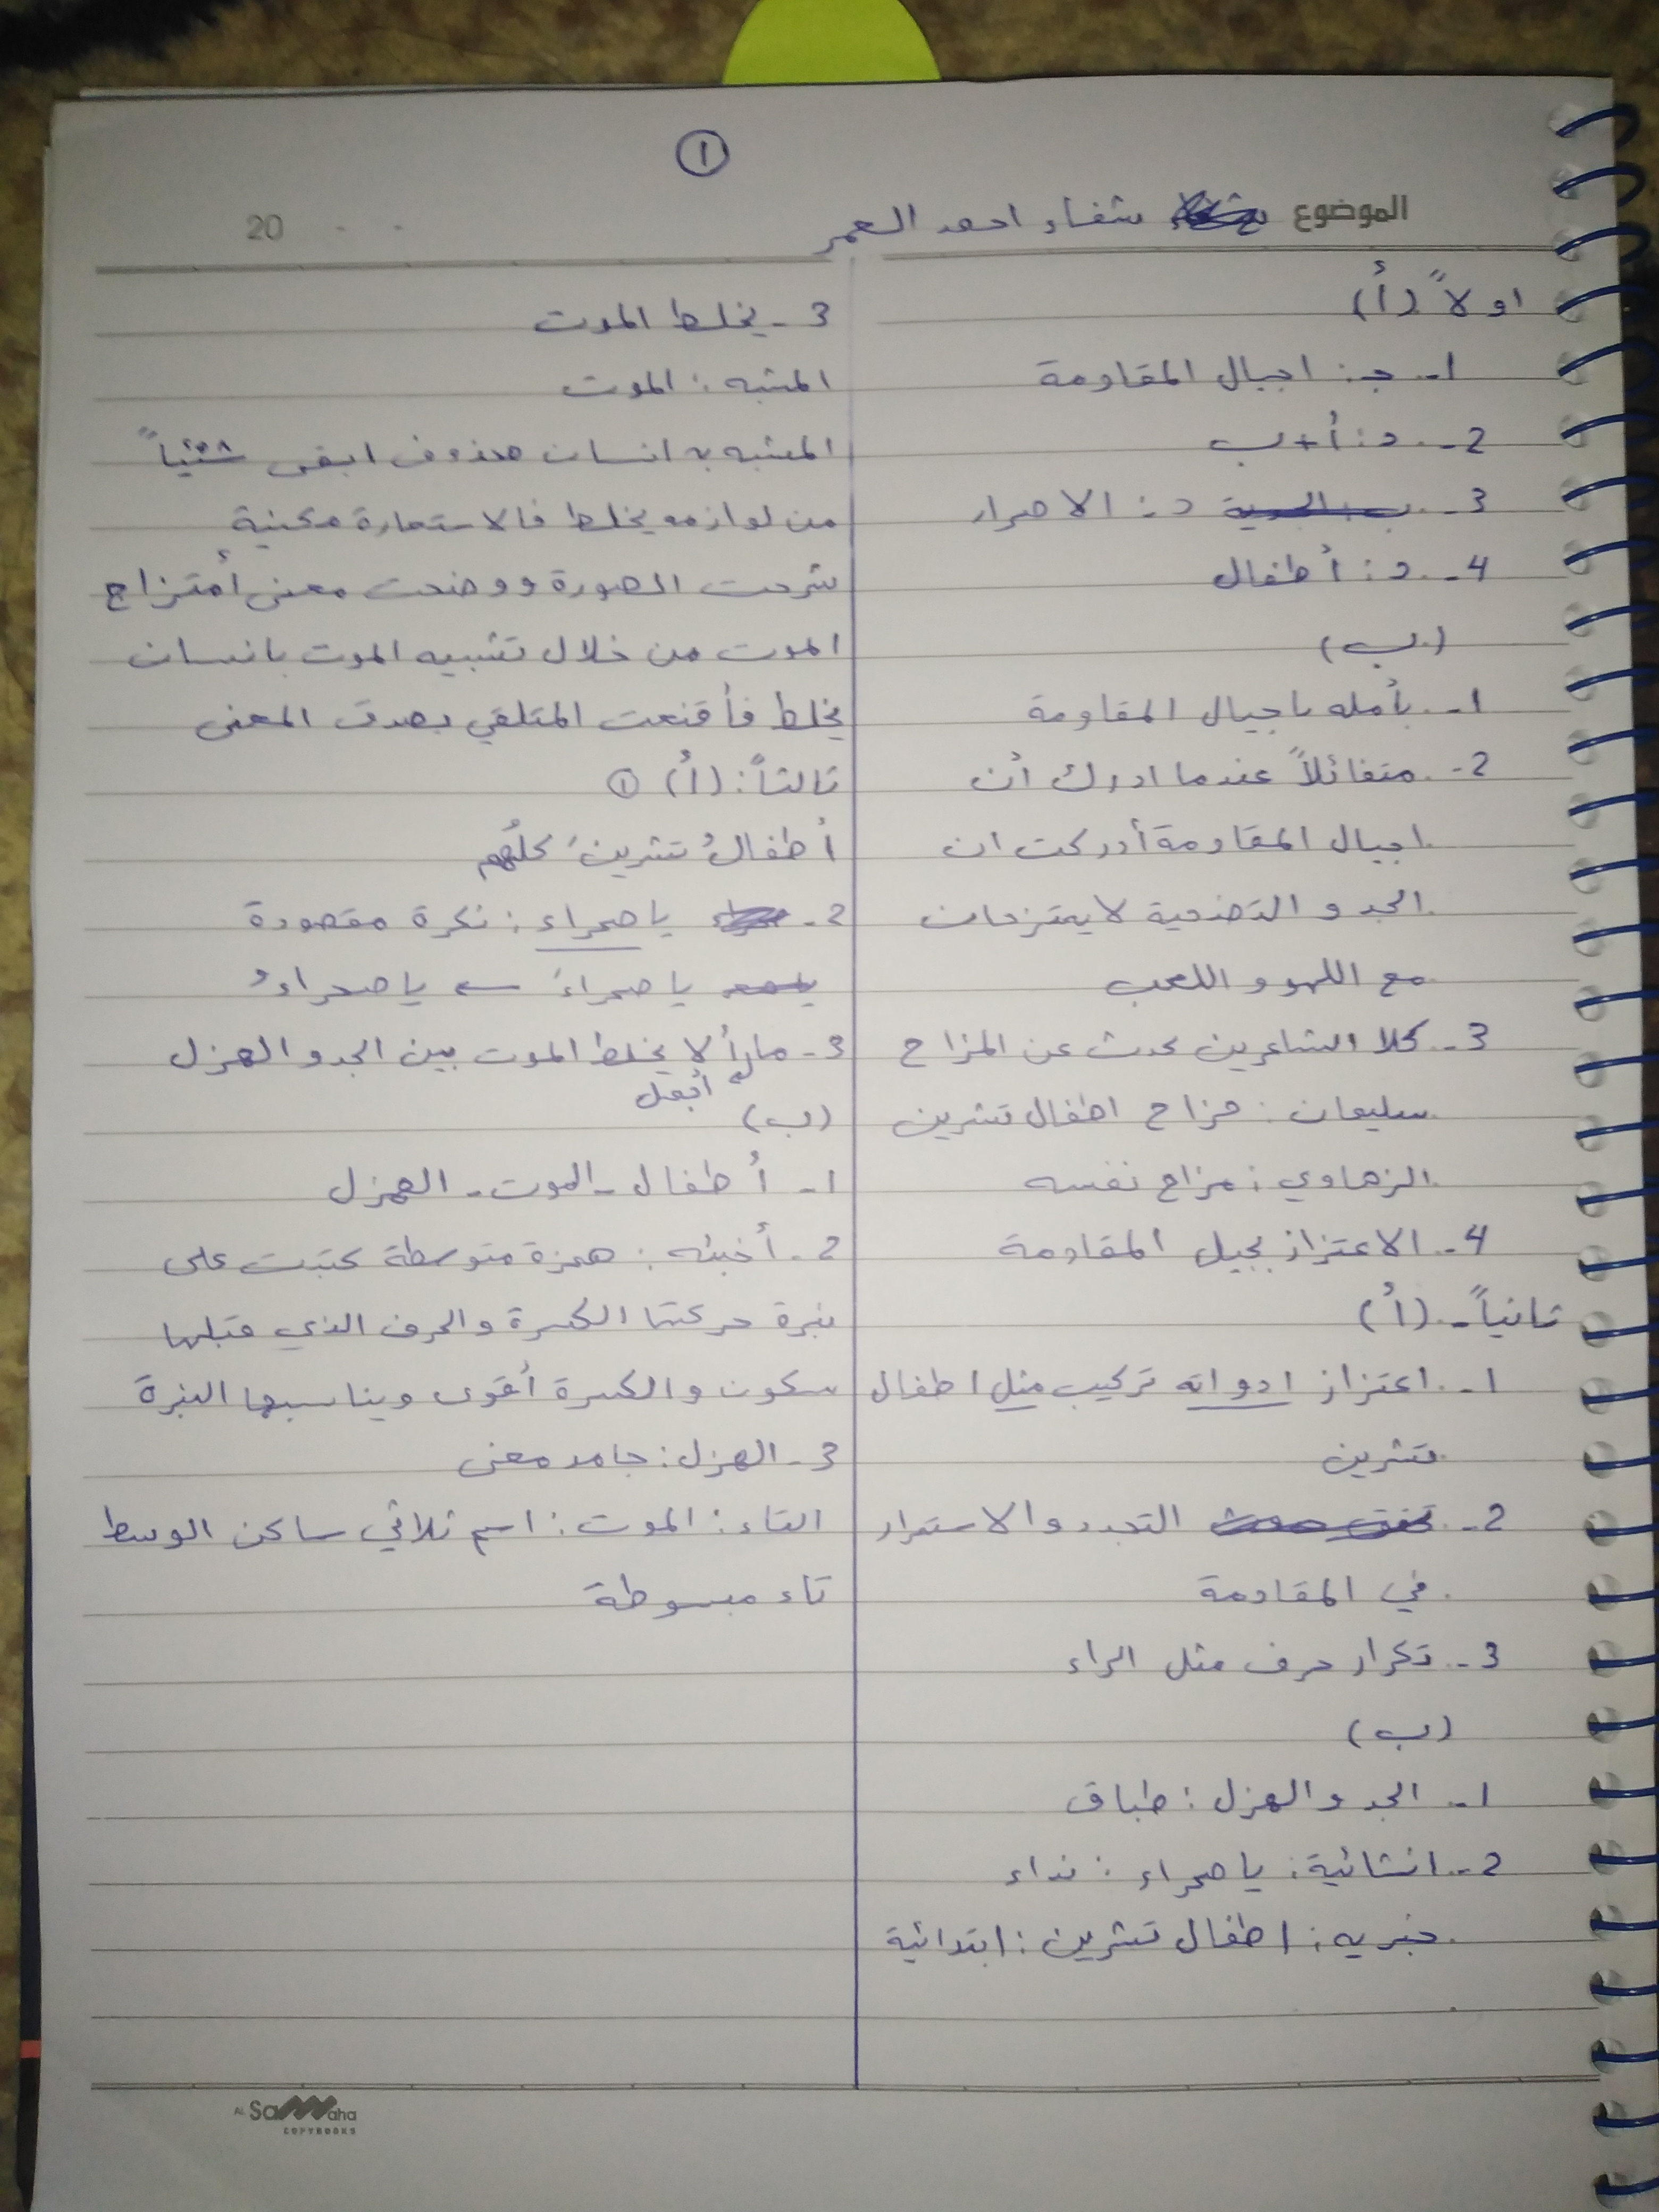 ١
الموضوع شفاء احمد العمر
20
اولاً (أ)
1- ج: اجيال المقاومة
2- د: أ+ب
3- د: الاصرار
4- د: أطفال
(ب)
1- بأمله باجيال المقاومة
2- متفائلاً عندما ادرك أن
اجيال المقاومة أدركت ان
الجد و التضحية لا يمتزجان
مع اللهو و اللعب
3- كلا الشاعرين تحدث عن المزاح
سليمان: مزاح اطفال تشرين
الزهاوي: مزاح نفسه
4- الاعتزاز بجيل المقاومة
ثانياً - (أ)
1- اعتزاز ادواته تركيب مثل اطفال
تشرين
2- التجدد والاستمرار
في المقاومة
3- تكرار حرف مثل الراء
(ب)
1- الجد و الهزل: طباق
2- انشائية: يا صحراء: نداء
خبريه: اطفال تشرين: ابتدائية
3- يخلط الموت
المشبه: الموت
المشبه به انسان محذوف ابقى شيئاً
من لوازمه يخلط فالاستعارة مكنية
شرحت الصورة ووضحت معنى أمتزاج
الموت من خلال تشبيه الموت بانسان
يخلط فأقنعت المتلقي بصدق المعنى
ثالثاً: (أ) ①
أطفالُ تشرينَ كلُّهم
2- يا صحراء: نكرة مقصودة
يا صحراءَ ← يا صحراءُ
3- لا يخلط الموت بين الجد و الهزل
(ب)
1- أطفال - الموت - الهزل
2- أخبئه: همزة متوسطة كتبت على
نبرة حركتها الكسرة والحرف الذي قبلها
سكون والكسرة أقوى ويناسبها النبرة
3- الهزل: جامد معنى
التاء: الموت: اسم ثلاثي ساكن الوسط
تاء مبسوطة
AL Samaha
COPYBOOKS